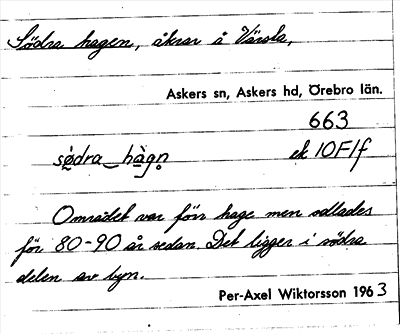 Södra hagen, åkrar å Värsta,
Askers sn, Askers hd, Örebro län.
663
sø̀dra hàgn̥ ek 10F1f
Området var förr hage men odlades
för 80-90 år sedan. Det ligger i södra
delen av byn.
Per-Axel Wiktorsson 1963